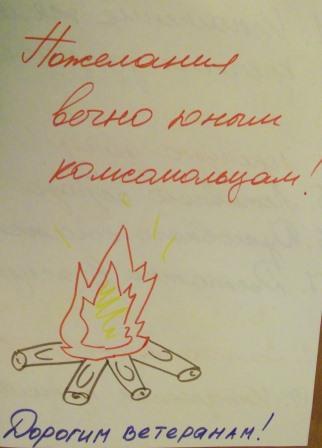 Пожелания
вечно юным
комсомольцам!
Дорогим ветеранам!